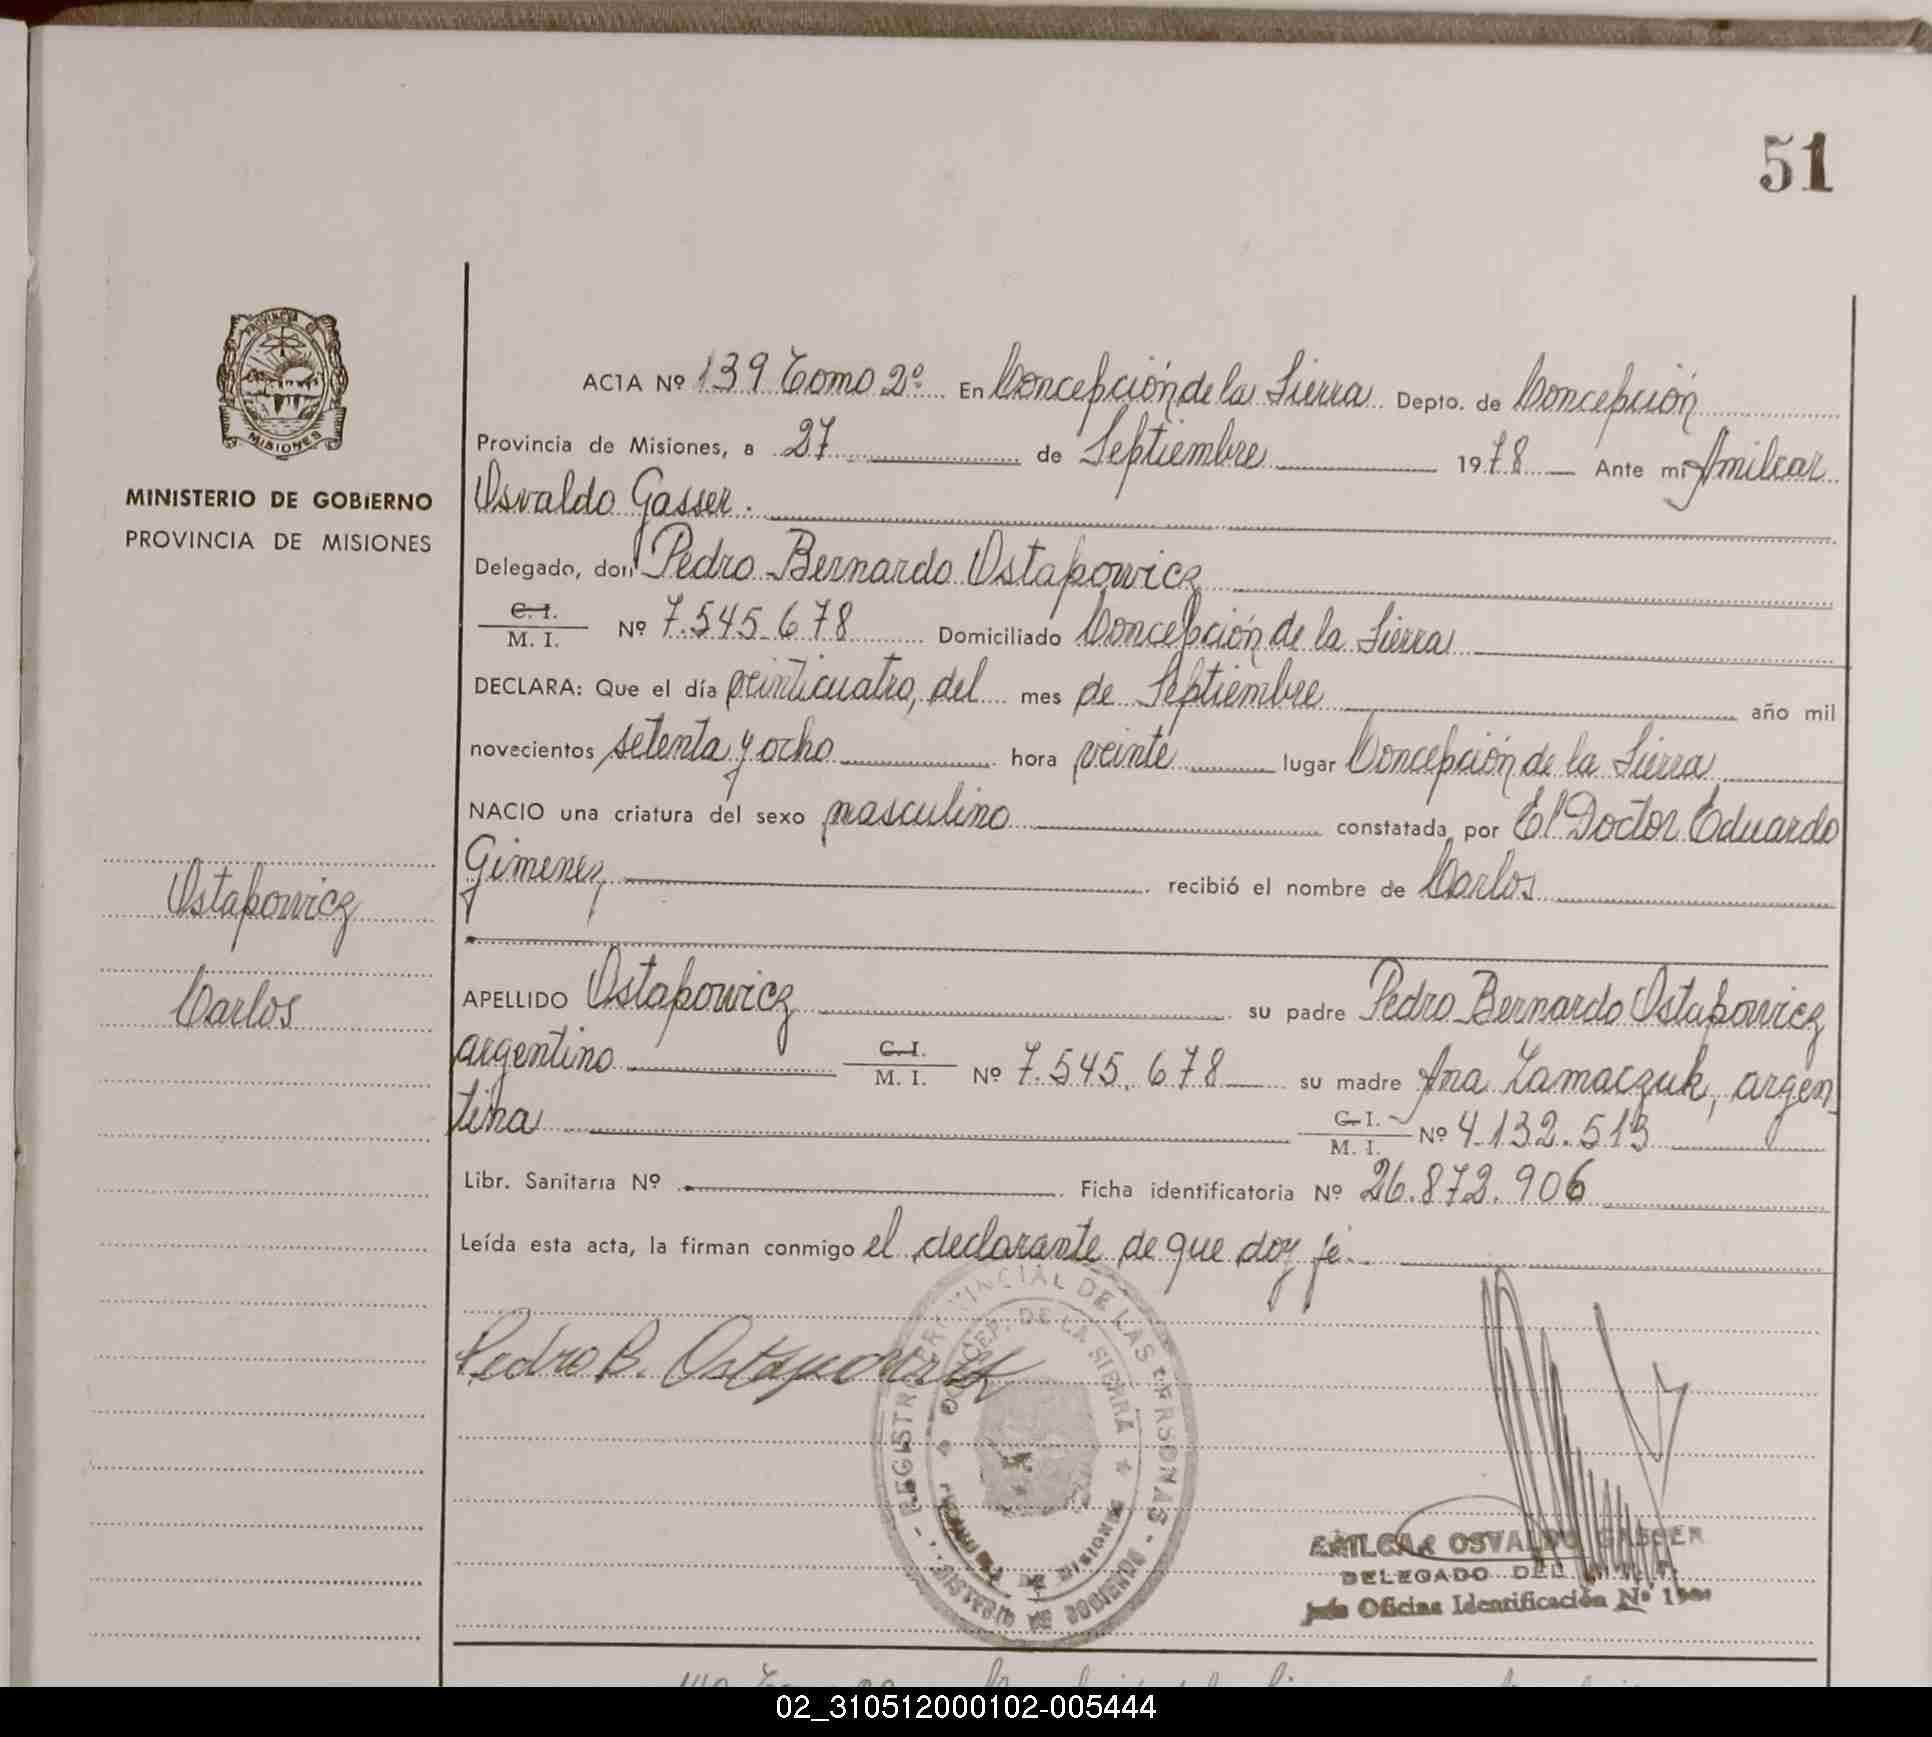 51
PROVINCIA DE
MISIONES
MINISTERIO DE GOBIERNO
PROVINCIA DE MISIONES
ACTA Nº 139 Tomo 2º En Concepción de la Sierra Depto. de Concepción
Provincia de Misiones, a 27 de Septiembre 1978 Ante mi Amilcar
Osvaldo Gasser.
Delegado, don Pedro Bernardo Ostapowicz
C. I.
M. I. Nº 7.545.678 Domiciliado Concepción de la Sierra
DECLARA: Que el día veinticuatro, del mes de Septiembre año mil
novecientos setenta y ocho hora veinte lugar Concepción de la Sierra
NACIO una criatura del sexo masculino constatada por El Doctor Eduardo
Gimenez recibió el nombre de Carlos
Ostapowicz
Carlos
APELLIDO Ostapowicz su padre Pedro Bernardo Ostapowicz
argentino C. I.
M. I. Nº 7.545.678 su madre Ana Zamaczuk, argen-
tina C. I.
M. I. Nº 4.132.513
Libr. Sanitaria Nº Ficha identificatoria Nº 26.872.906
Leída esta acta, la firman conmigo el declarante de que doy fé.
Pedro B. Ostapowicz
REGISTRO PROVINCIAL DE LAS PERSONAS
CONCEP. DE LA SIERRA
MISIONES
AMILCAR OSVALDO GASSER
DELEGADO DEL
Jefe Oficina Identificación Nº
02_310512000102-005444